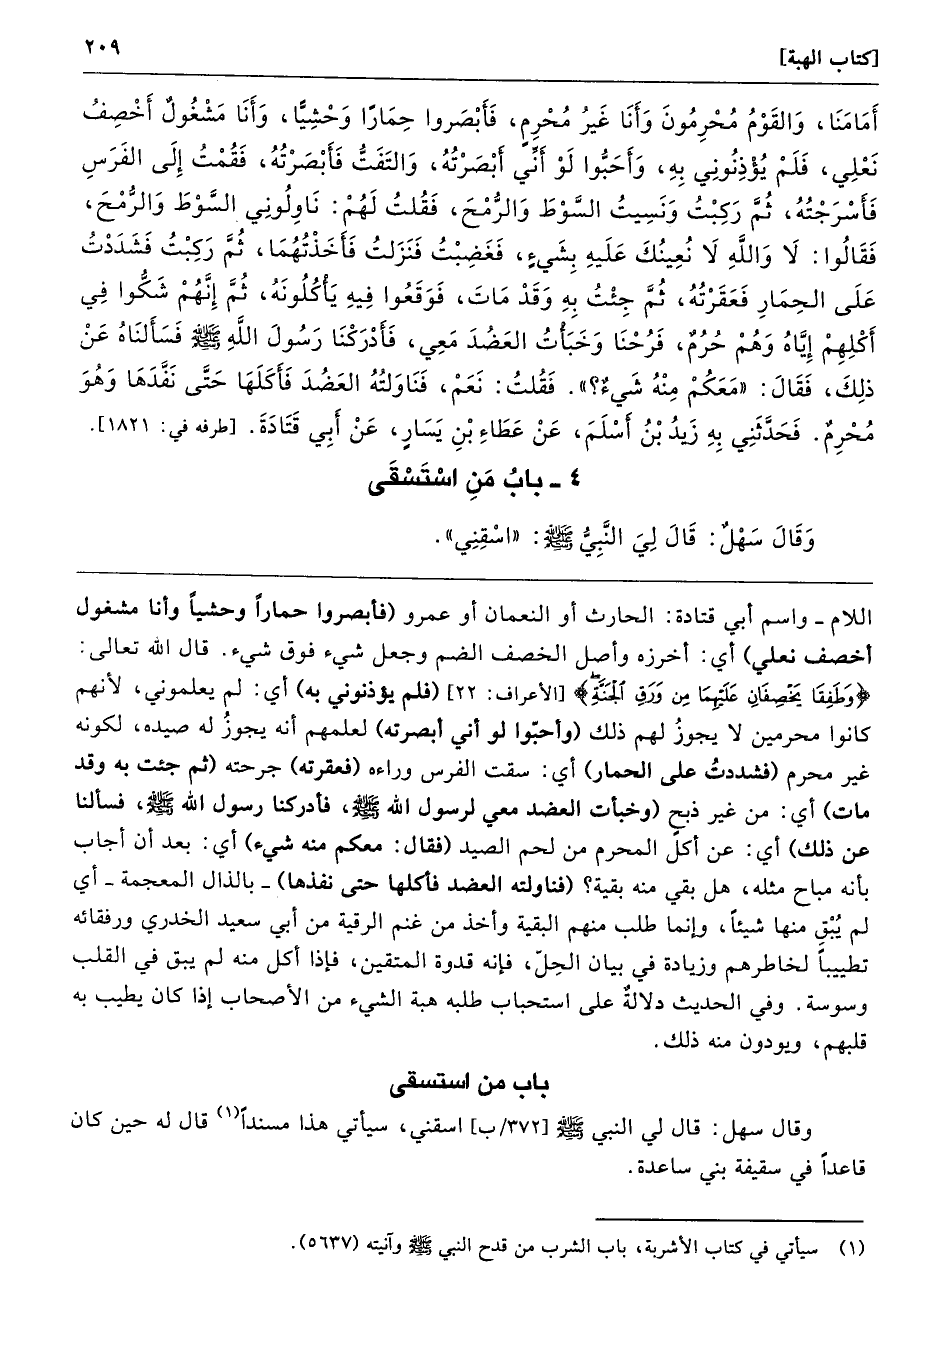 [كتاب الهبة]
٢٠٩
أَمَامَنَا، وَالقَوْمُ مُحْرِمُونَ وَأَنَا غَيرُ مُحْرِمٍ، فَأَبْصَرُوا حِمَارًا وَحْشِيًّا، وَأَنَا مَشْغُولٌ أَخْصِفُ
نَعْلِي، فَلَمْ يُؤْذِنُونِي بِهِ، وَأَحَبُّوا لَوْ أَنِّي أَبْصَرْتُهُ، وَالتَفَتُّ فَأَبْصَرْتُهُ، فَقُمْتُ إِلَى الفَرَسِ
فَأَسْرَجْتُهُ، ثُمَّ رَكِبْتُ وَنَسِيتُ السَّوْطَ وَالرُّمْحَ، فَقُلتُ لَهُمْ: نَاوِلُونِي السَّوْطَ وَالرُّمْحَ،
فَقَالُوا: لَا وَاللَّهِ لَا نُعِينُكَ عَلَيهِ بِشَيءٍ، فَغَضِبْتُ فَنَزَلتُ فَأَخَذْتُهُمَا، ثُمَّ رَكِبْتُ فَشَدَدْتُ
عَلَى الحِمَارِ فَعَقَرْتُهُ، ثُمَّ جِئْتُ بِهِ وَقَدْ مَاتَ، فَوَقَعُوا فِيهِ يَأْكُلُونَهُ، ثُمَّ إِنَّهُمْ شَكُّوا فِي
أَكْلِهِمْ إِيَّاهُ وَهُمْ حُرُمٌ، فَرُحْنَا وَخَبَأْتُ العَضُدَ مَعِي، فَأَدْرَكْنَا رَسُولَ اللَّهِ ﷺ فَسَأَلنَاهُ عَنْ
ذلِكَ، فَقَالَ: «مَعَكُمْ مِنْهُ شَيءٌ؟». فَقُلتُ: نَعَمْ، فَنَاوَلتُهُ العَضُدَ فَأَكَلَهَا حَتَّى نَفَّدَهَا وَهُوَ
مُحْرِمٌ. فَحَدَّثَنِي بِهِ زَيدُ بْنُ أَسْلَمَ، عَنْ عَطَاءِ بْنِ يَسَارٍ، عَنْ أَبِي قَتَادَةَ. [طرفه في: ١٨٢١].
٤ ـ بابُ مَنِ اسْتَسْقَى
وَقَالَ سَهْلٌ: قَالَ لِيَ النَّبِيُّ ﷺ: «اسْقِنِي».
اللام ـ واسم أبي قتادة: الحارث أو النعمان أو عمرو (فأبصروا حماراً وحشياً وأنا مشغول
أخصف نعلي) أي: أخرزه وأصل الخصف الضم وجعل شيء فوق شيء. قال الله تعالى:
﴿وَطَفِقَا يَخْصِفَانِ عَلَيْهِمَا مِن وَرَقِ ٱلْجَنَّةِۖ﴾ [الأعراف: ٢٢] (فلم يؤذنوني به) أي: لم يعلموني، لأنهم
كانوا محرمين لا يجوزُ لهم ذلك (وأحبّوا لو أني أبصرته) لعلمهم أنه يجوزُ له صيده، لكونه
غير محرم (فشددتُ على الحمار) أي: سقت الفرس وراءه (فعقرته) جرحته (ثم جئت به وقد
مات) أي: من غير ذبح (وخبأت العضد معي لرسول الله ﷺ، فأدركنا رسول الله ﷺ، فسألنا
عن ذلك) أي: عن أكل المحرم من لحم الصيد (فقال: معكم منه شيء) أي: بعد أن أجاب
بأنه مباح مثله، هل بقي منه بقية؟ (فناولته العضد فأكلها حتى نفذها) ـ بالذال المعجمة ـ أي
لم يُبْقِ منها شيئاً، وإنما طلب منهم البقية وأخذ من غنم الرقية من أبي سعيد الخدري ورفقائه
تطييباً لخاطرهم وزيادة في بيان الحِلّ، فإنه قدوة المتقين، فإذا أكل منه لم يبق في القلب
وسوسة. وفي الحديث دلالةٌ على استحباب طلبه هبة الشيء من الأصحاب إذا كان يطيب به
قلبهم، ويودون منه ذلك.
باب من استسقى
وقال سهل: قال لي النبي ﷺ [٣٧٢/ب] اسقني، سيأتي هذا مسنداً(١) قال له حين كان
قاعداً في سقيفة بني ساعدة.
(١) سيأتي في كتاب الأشربة، باب الشرب من قدح النبي ﷺ وآنيته (٥٦٣٧).